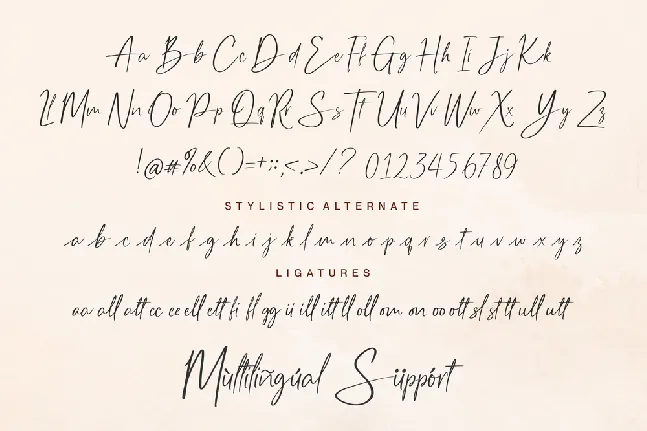 Aa Bb Cc Dd Ee Ff Gg Hh Ii Jj Kk
Ll Mm Nn Oo Pp Qq Rr Ss Tt Uu Vv Ww Xx Yy Zz
!@#%&()=+:;,<.>/? 0123456789
STYLISTIC ALTERNATE
a b c d e f g h i j k l m n o p q r s t u v w x y z
LIGATURES
aa all att cc ee ell ett fi fl gg ii ill itt ll oll om on oo ott sl st tt ull utt
Mùltilïñgúal Süppórt